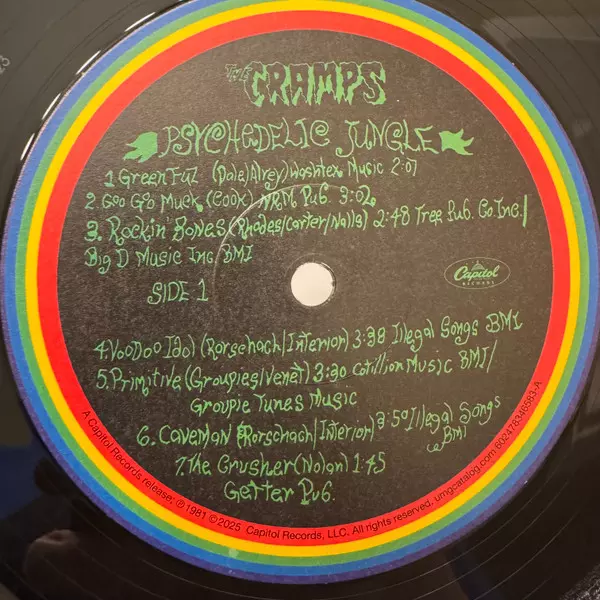 THE CRAMPS
PSYCHEDELIC JUNGLE
1 Green Fuz (Dale/Alrey) Washtex Music 2:07
2. Goo Goo Muck (Cook) NRM Pub. 3:02
3. Rockin' Bones (Rhodes/Carter/Nalls) 2:48 Tree Pub. Co. Inc./
Big D Music Inc. BMI
SIDE 1
Capitol
RECORDS
4. VooDoo Idol (Rorschach/Interior) 3:38 Illegal Songs BMI
5. Primitive (Groupies/Venet) 3:30 Cotillion Music BMI/
Groupie Tunes Music
6. Caveman (Rorschach/Interior) 3:50 Illegal Songs
BMI
7. The Crusher (Nolan) 1:45
Getter Pub.
A Capitol Records release; ℗1981 ©2025 Capitol Records, LLC. All rights reserved. umgcatalog.com 60247846583-A